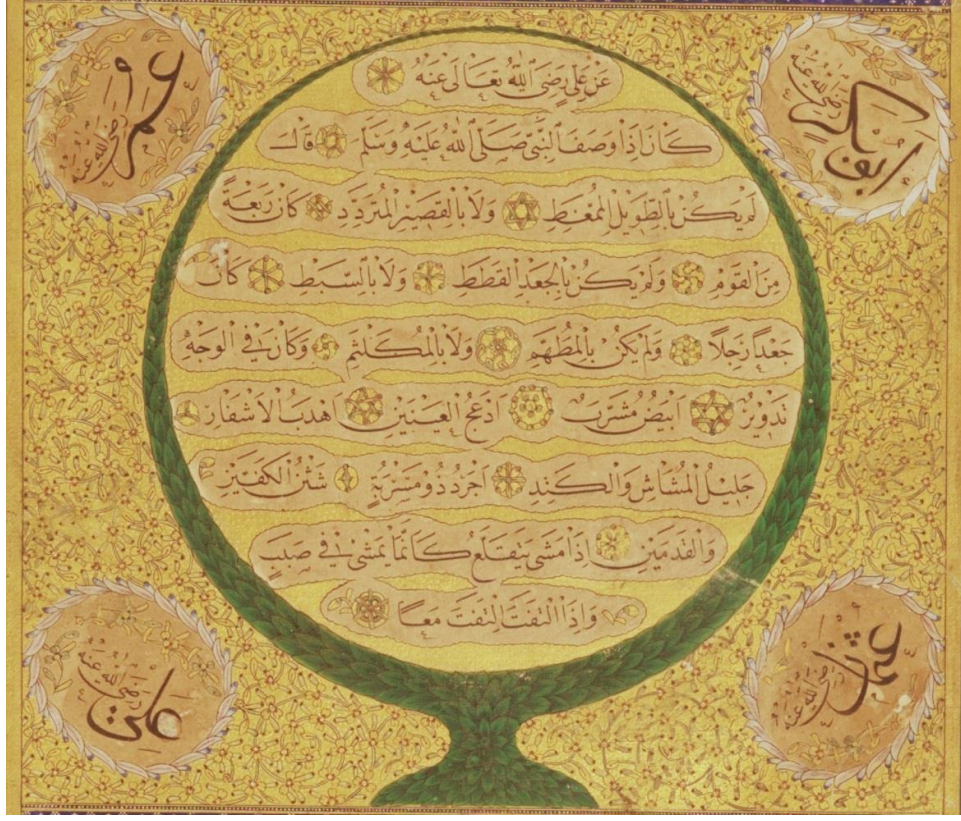 ابو بكر رضى الله عنه
عمر رضى الله عنه
عَنْ عَلِىٍّ رَضِىَ اللّٰهُ تَعَالٰى عَنْهُ
كَانَ اِذَا وَصَفَ النَّبِىَّ صَلَّى اللّٰهُ عَلَيْهِ وَسَلَّمَ قَالَ
لَمْ يَكُنْ بِالطَّوِيلِ الْمُمَّغِطِ وَلَا بِالْقَصِيرِ الْمُتَرَدِّدِ كَانَ رَبْعَةً
مِنَ الْقَوْمِ وَلَمْ يَكُنْ بِالْجَعْدِ الْقَطَطِ وَلَا بِالسَّبِطِ كَانَ
جَعْدًا رَجِلًا وَلَمْ يَكُنْ بِالْمُطَهَّمِ وَلَا بِالْمُكَلْثَمِ وَكَانَ فِى الْوَجْهِ
تَدْوِيرٌ اَبْيَضُ مُشْرَبٌ اَدْعَجُ الْعَيْنَيْنِ اَهْدَبُ الْاَشْفَارِ
جَلِيلُ الْمُشَاشِ وَالْكَتِدِ اَجْرَدُ ذُو مَسْرُبَةٍ شَثْنُ الْكَفَّيْنِ
وَالْقَدَمَيْنِ اِذَا مَشٰى يَتَقَلَّعُ كَاَنَّمَا يَمْشِى فِى صَبَبٍ
وَاِذَا الْتَفَتَ الْتَفَتَ مَعًا
عثمان رضى الله عنه
على رضى الله عنه